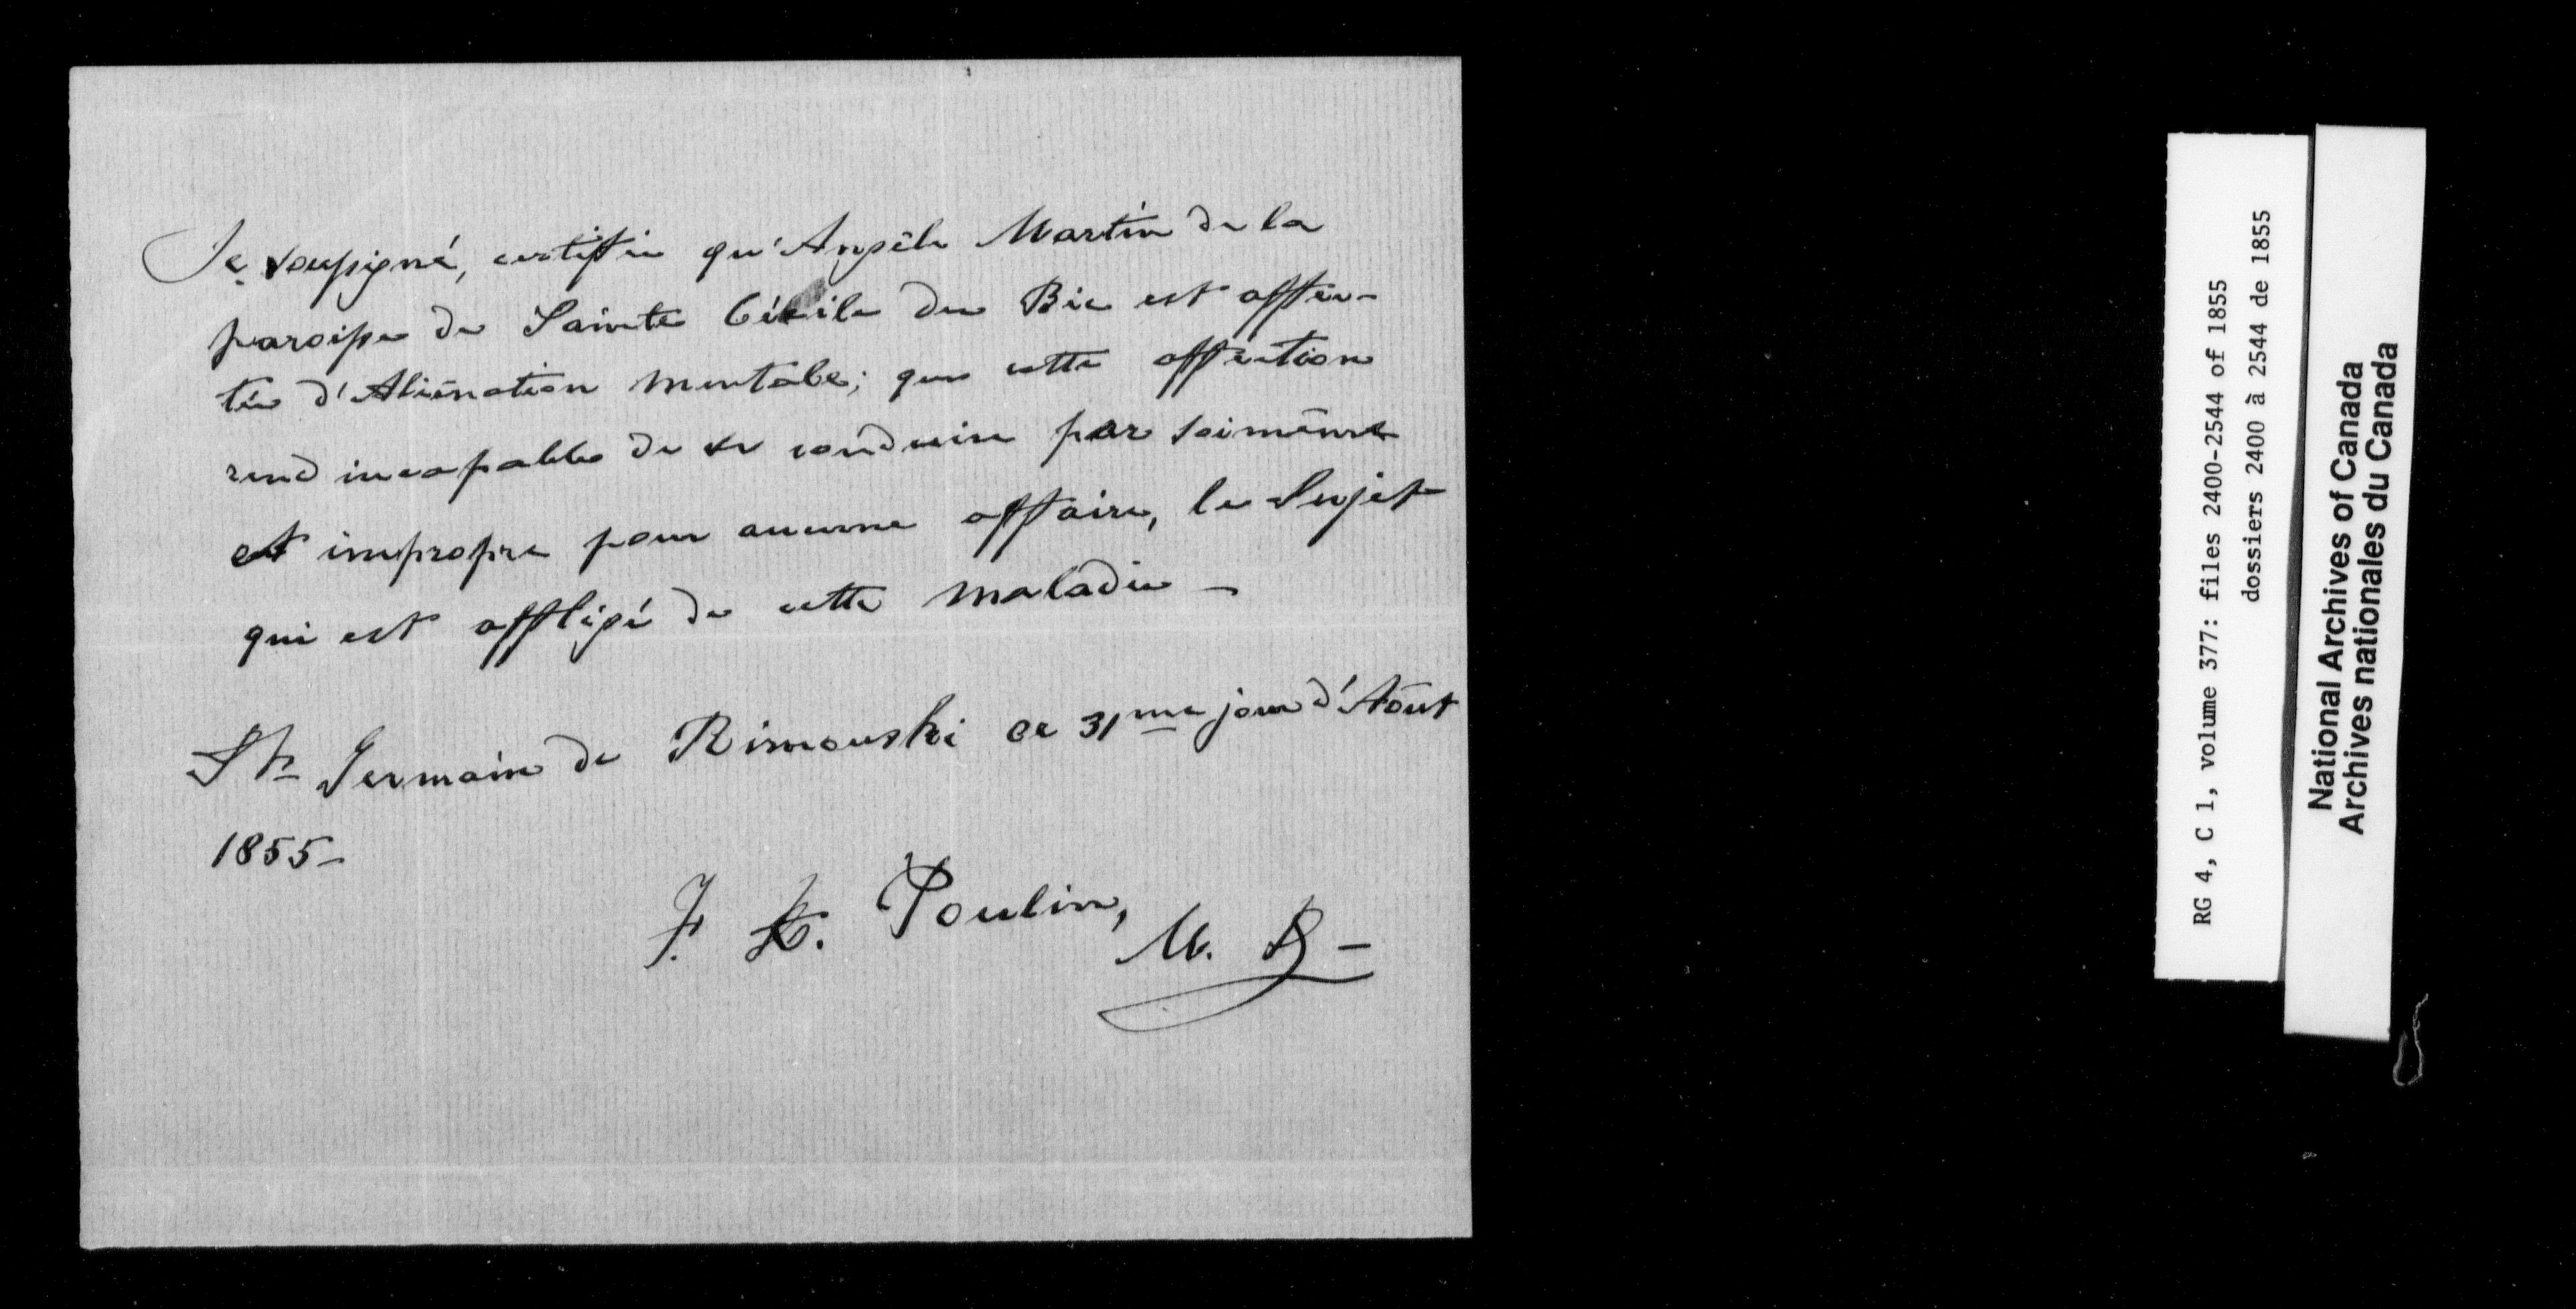 Je soussigné, certifie qu'Angèle Martin de la
paroisse de Sainte Cécile du Bic est affec-
tée d'Aliénation mentale; que cette affection
rend incapable de se conduire par soi même
et impropre pour aucune affaire, le Sujet
qui est affligé de cette maladie –
St Germain de Rimouski ce 31me jour d'Août
1855 –
F. Poulin, M. D –
RG 4, C 1, volume 377: files 2400-2544 of 1855
dossiers 2400 à 2544 de 1855
National Archives of Canada
Archives nationales du Canada